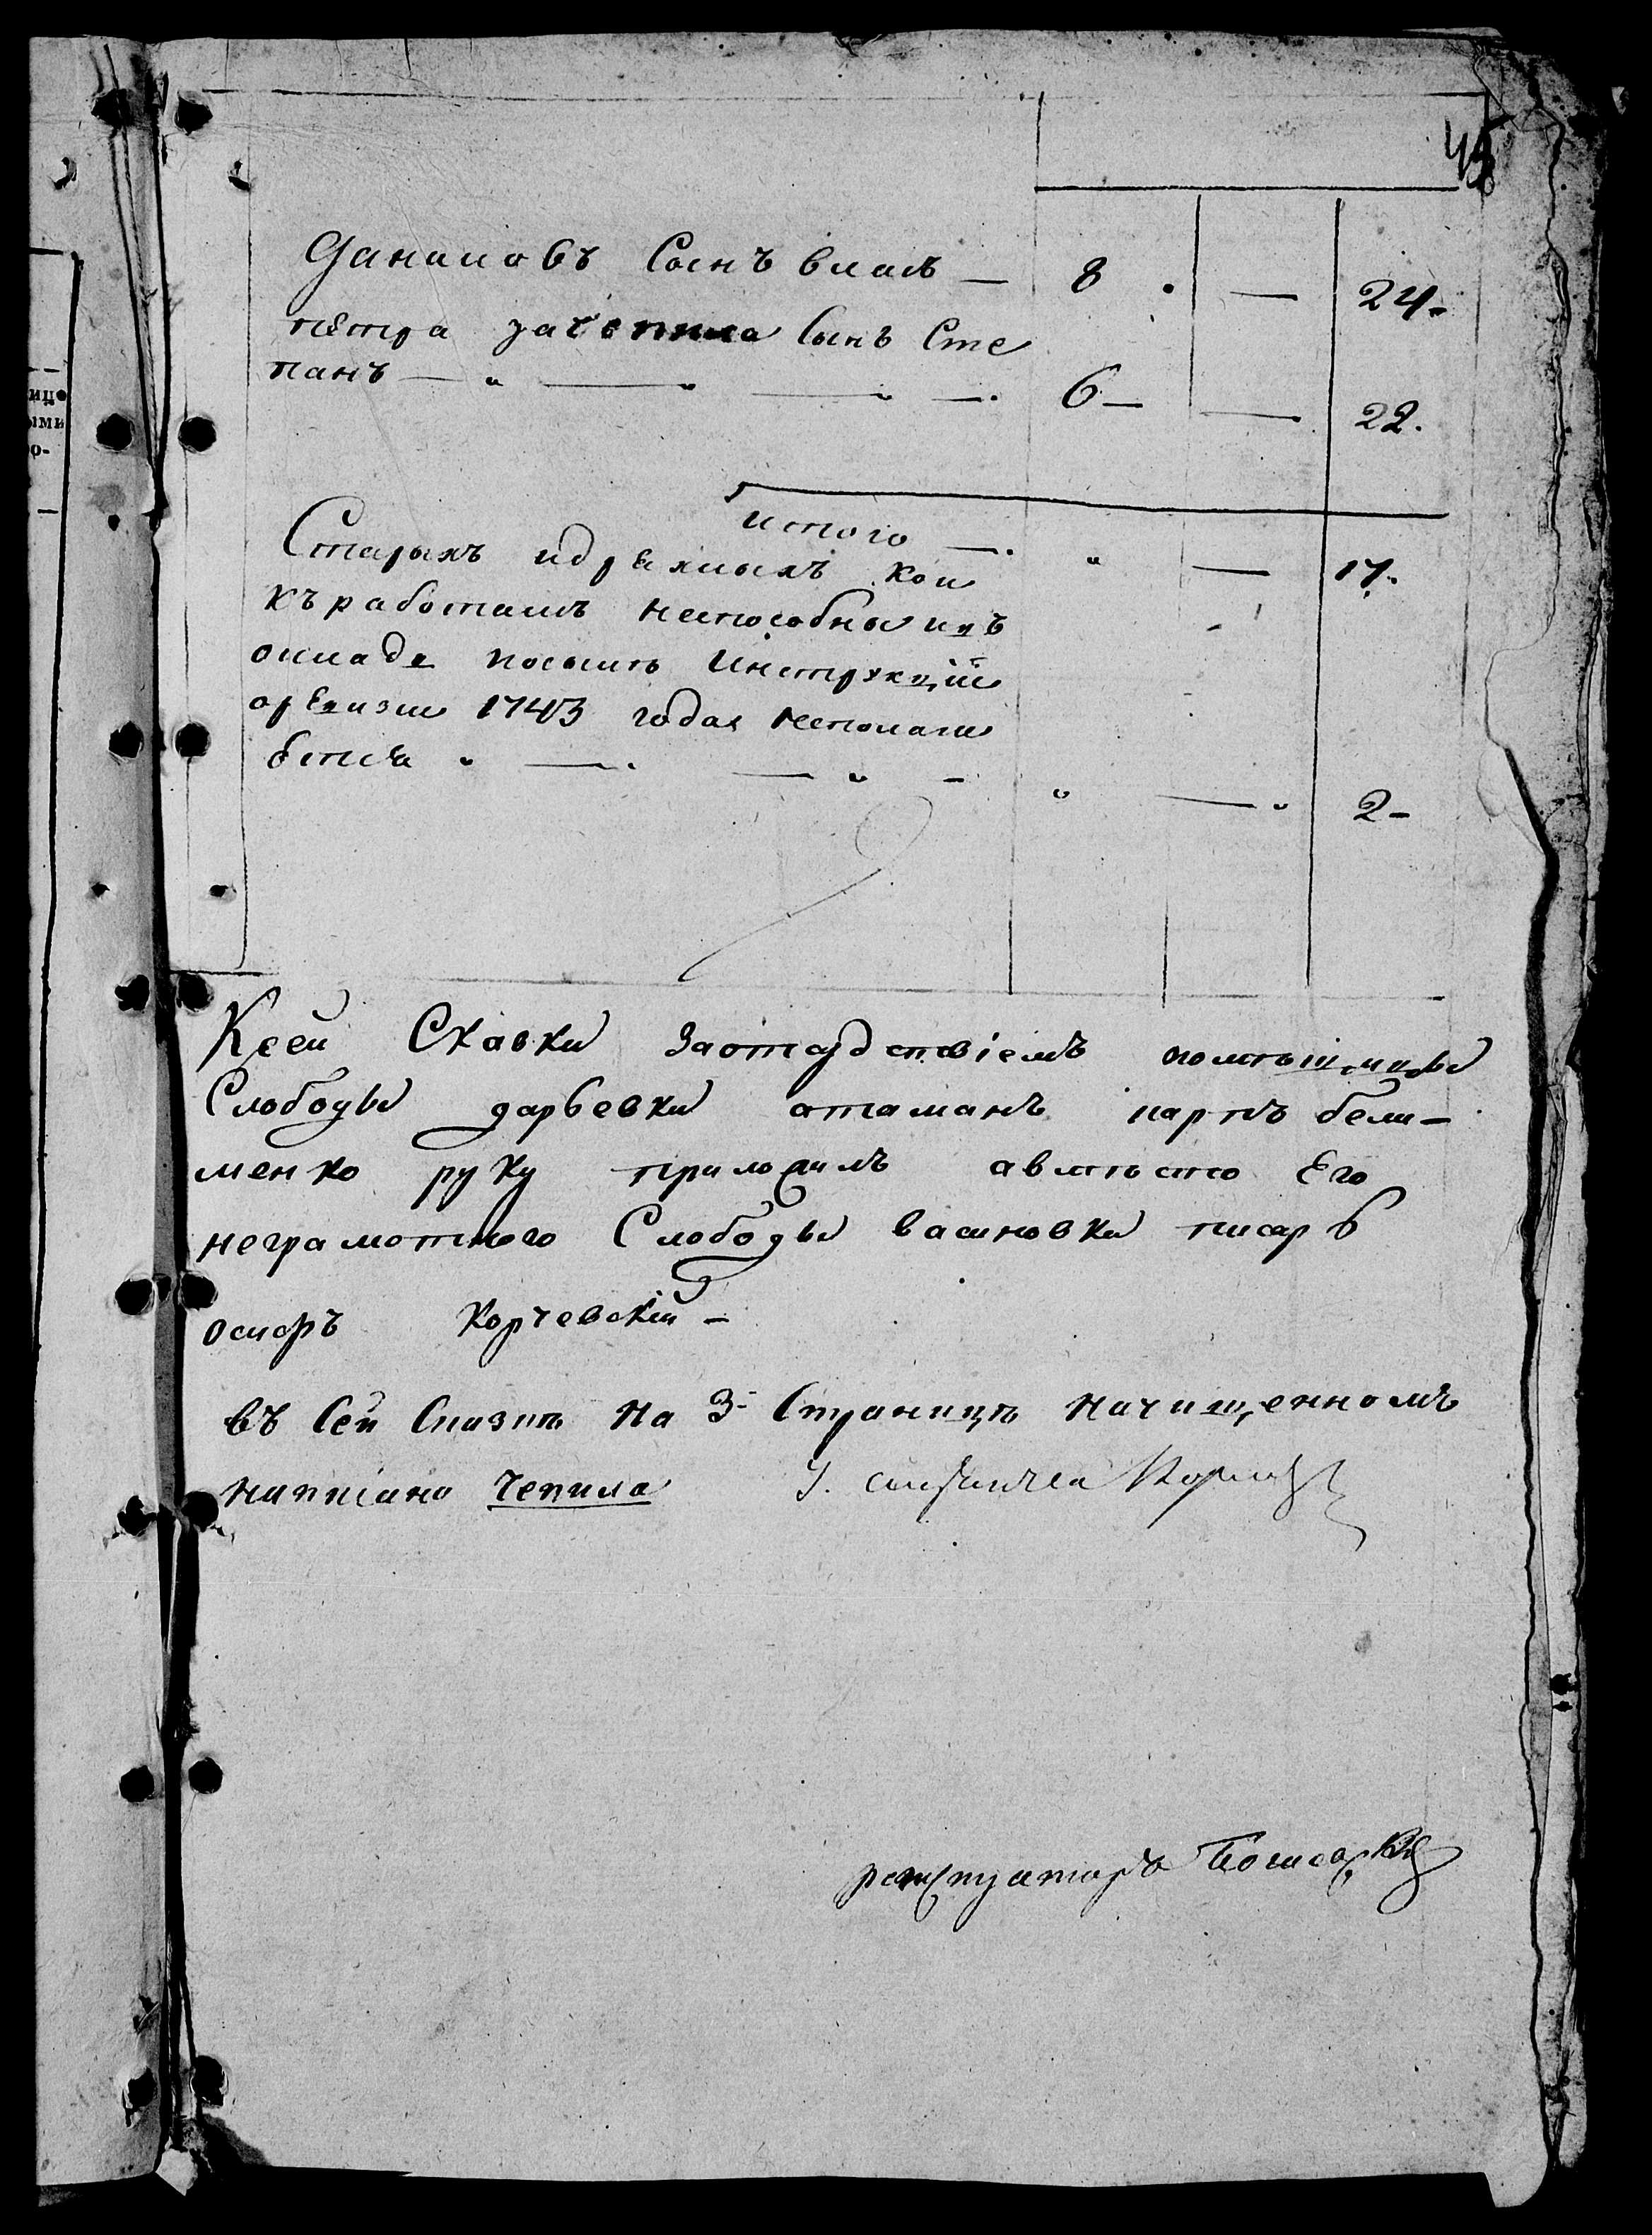 45
Даниловъ Сынъ власъ — 8 . — 24.
петра зачепила Сынъ Сте
панъ — 6 — — 22.
итого — „ — 17.
Старыхъ идряхлыхъ кои
къработамъ неспособны ивъ
окладе посиле Инструкціи
оревизіи 1743 года неполага
ется „ — „ — 2 —
Ксей Скаски Заотсудствіемъ помѣщицы
Слободы дарьевки атаманъ карпъ бели-
менко руку приложилъ авместо Его
неграмотного Слободы васиновки писарь
осифъ Корчевскій —
въ Сей Сказкѣ на 3й Страницѣ начищенномъ
написано чепила
регистраторъ
ице
ыми
о-